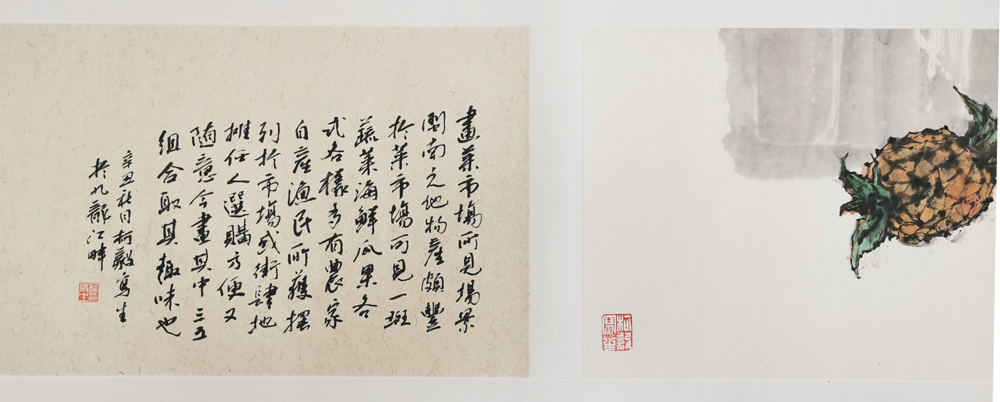 畫菜市場所見場景
閩南之地物產頗豐
於菜市場可見一斑
蔬菜海鮮瓜果各
式各樣多有農家
自產漁民所獲擺
列於市場或街肆地
攤任人選購方便又
隨意今畫其中三五
組合取其趣味也
辛丑秋月柯毅寫生
於九龍江畔